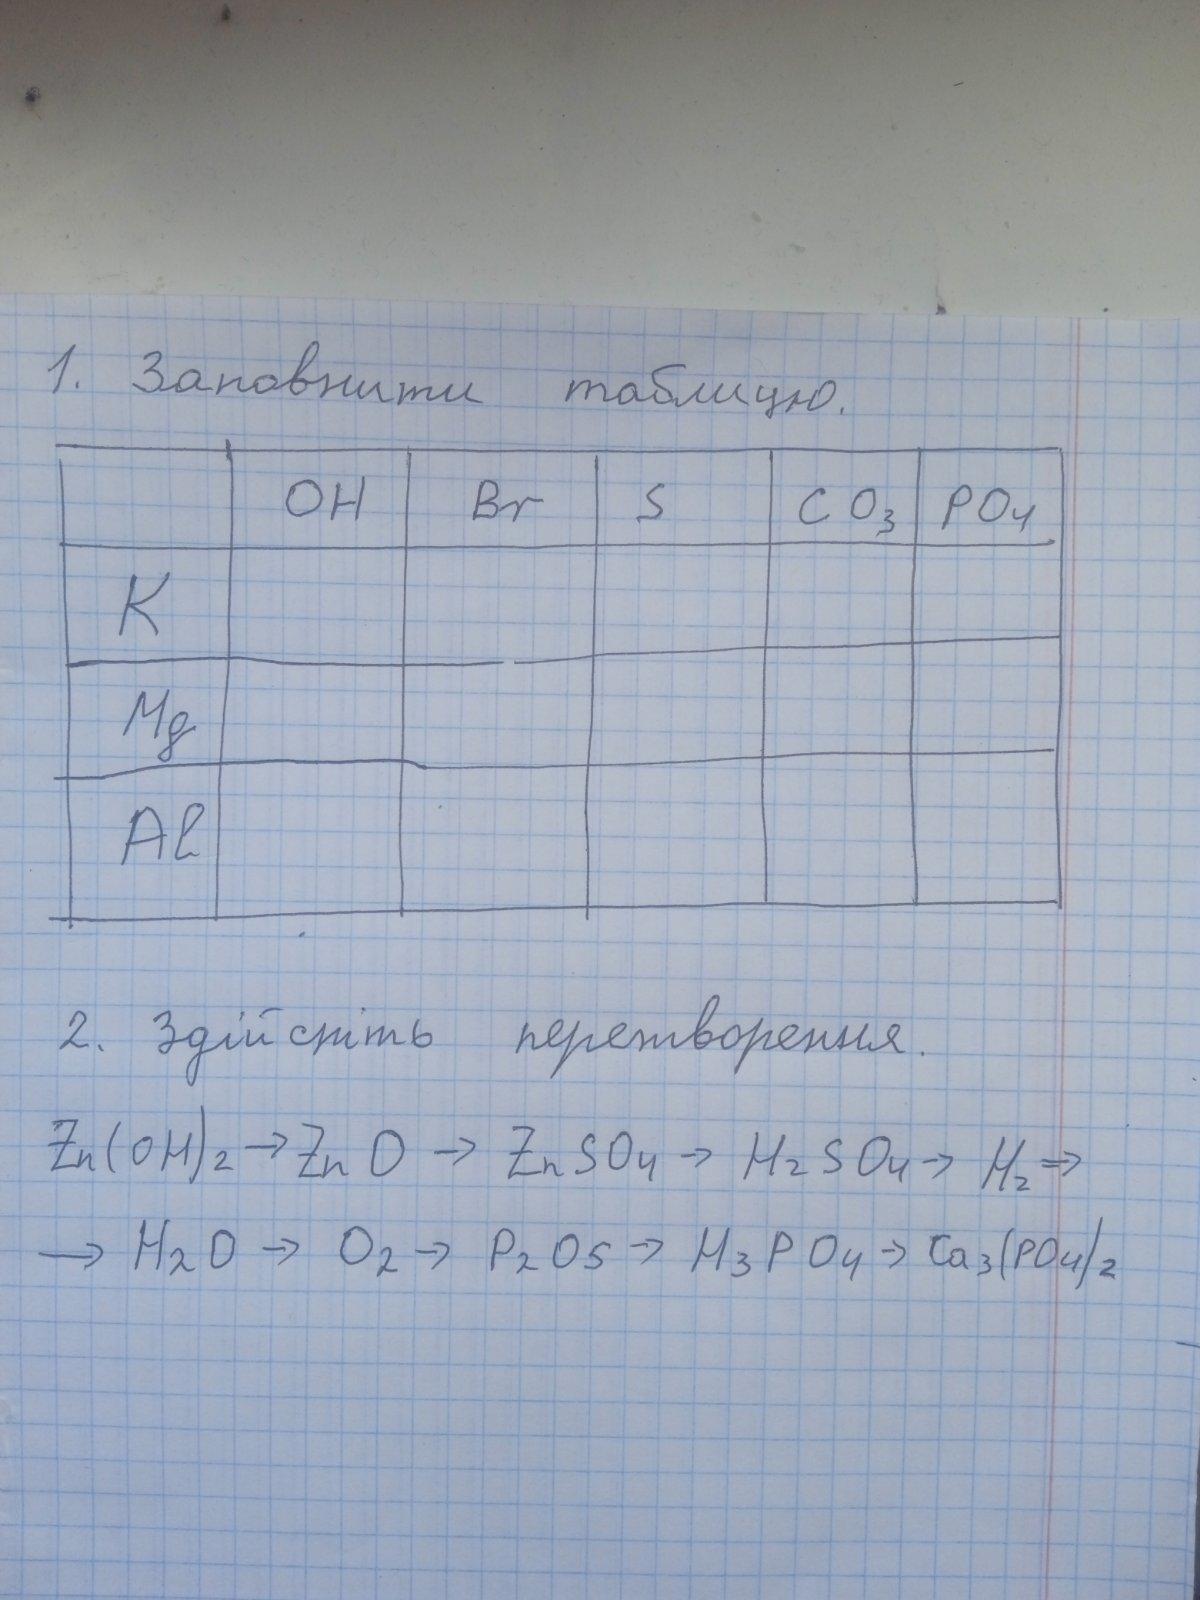 1. Заповнити таблицю.
OH Br S CO3 PO4
K
Mg
Al
2. Здійсніть перетворення.
Zn(OH)2 → ZnO → ZnSO4 → H2SO4 → H2 →
→ H2O → O2 → P2O5 → H3PO4 → Ca3(PO4)2